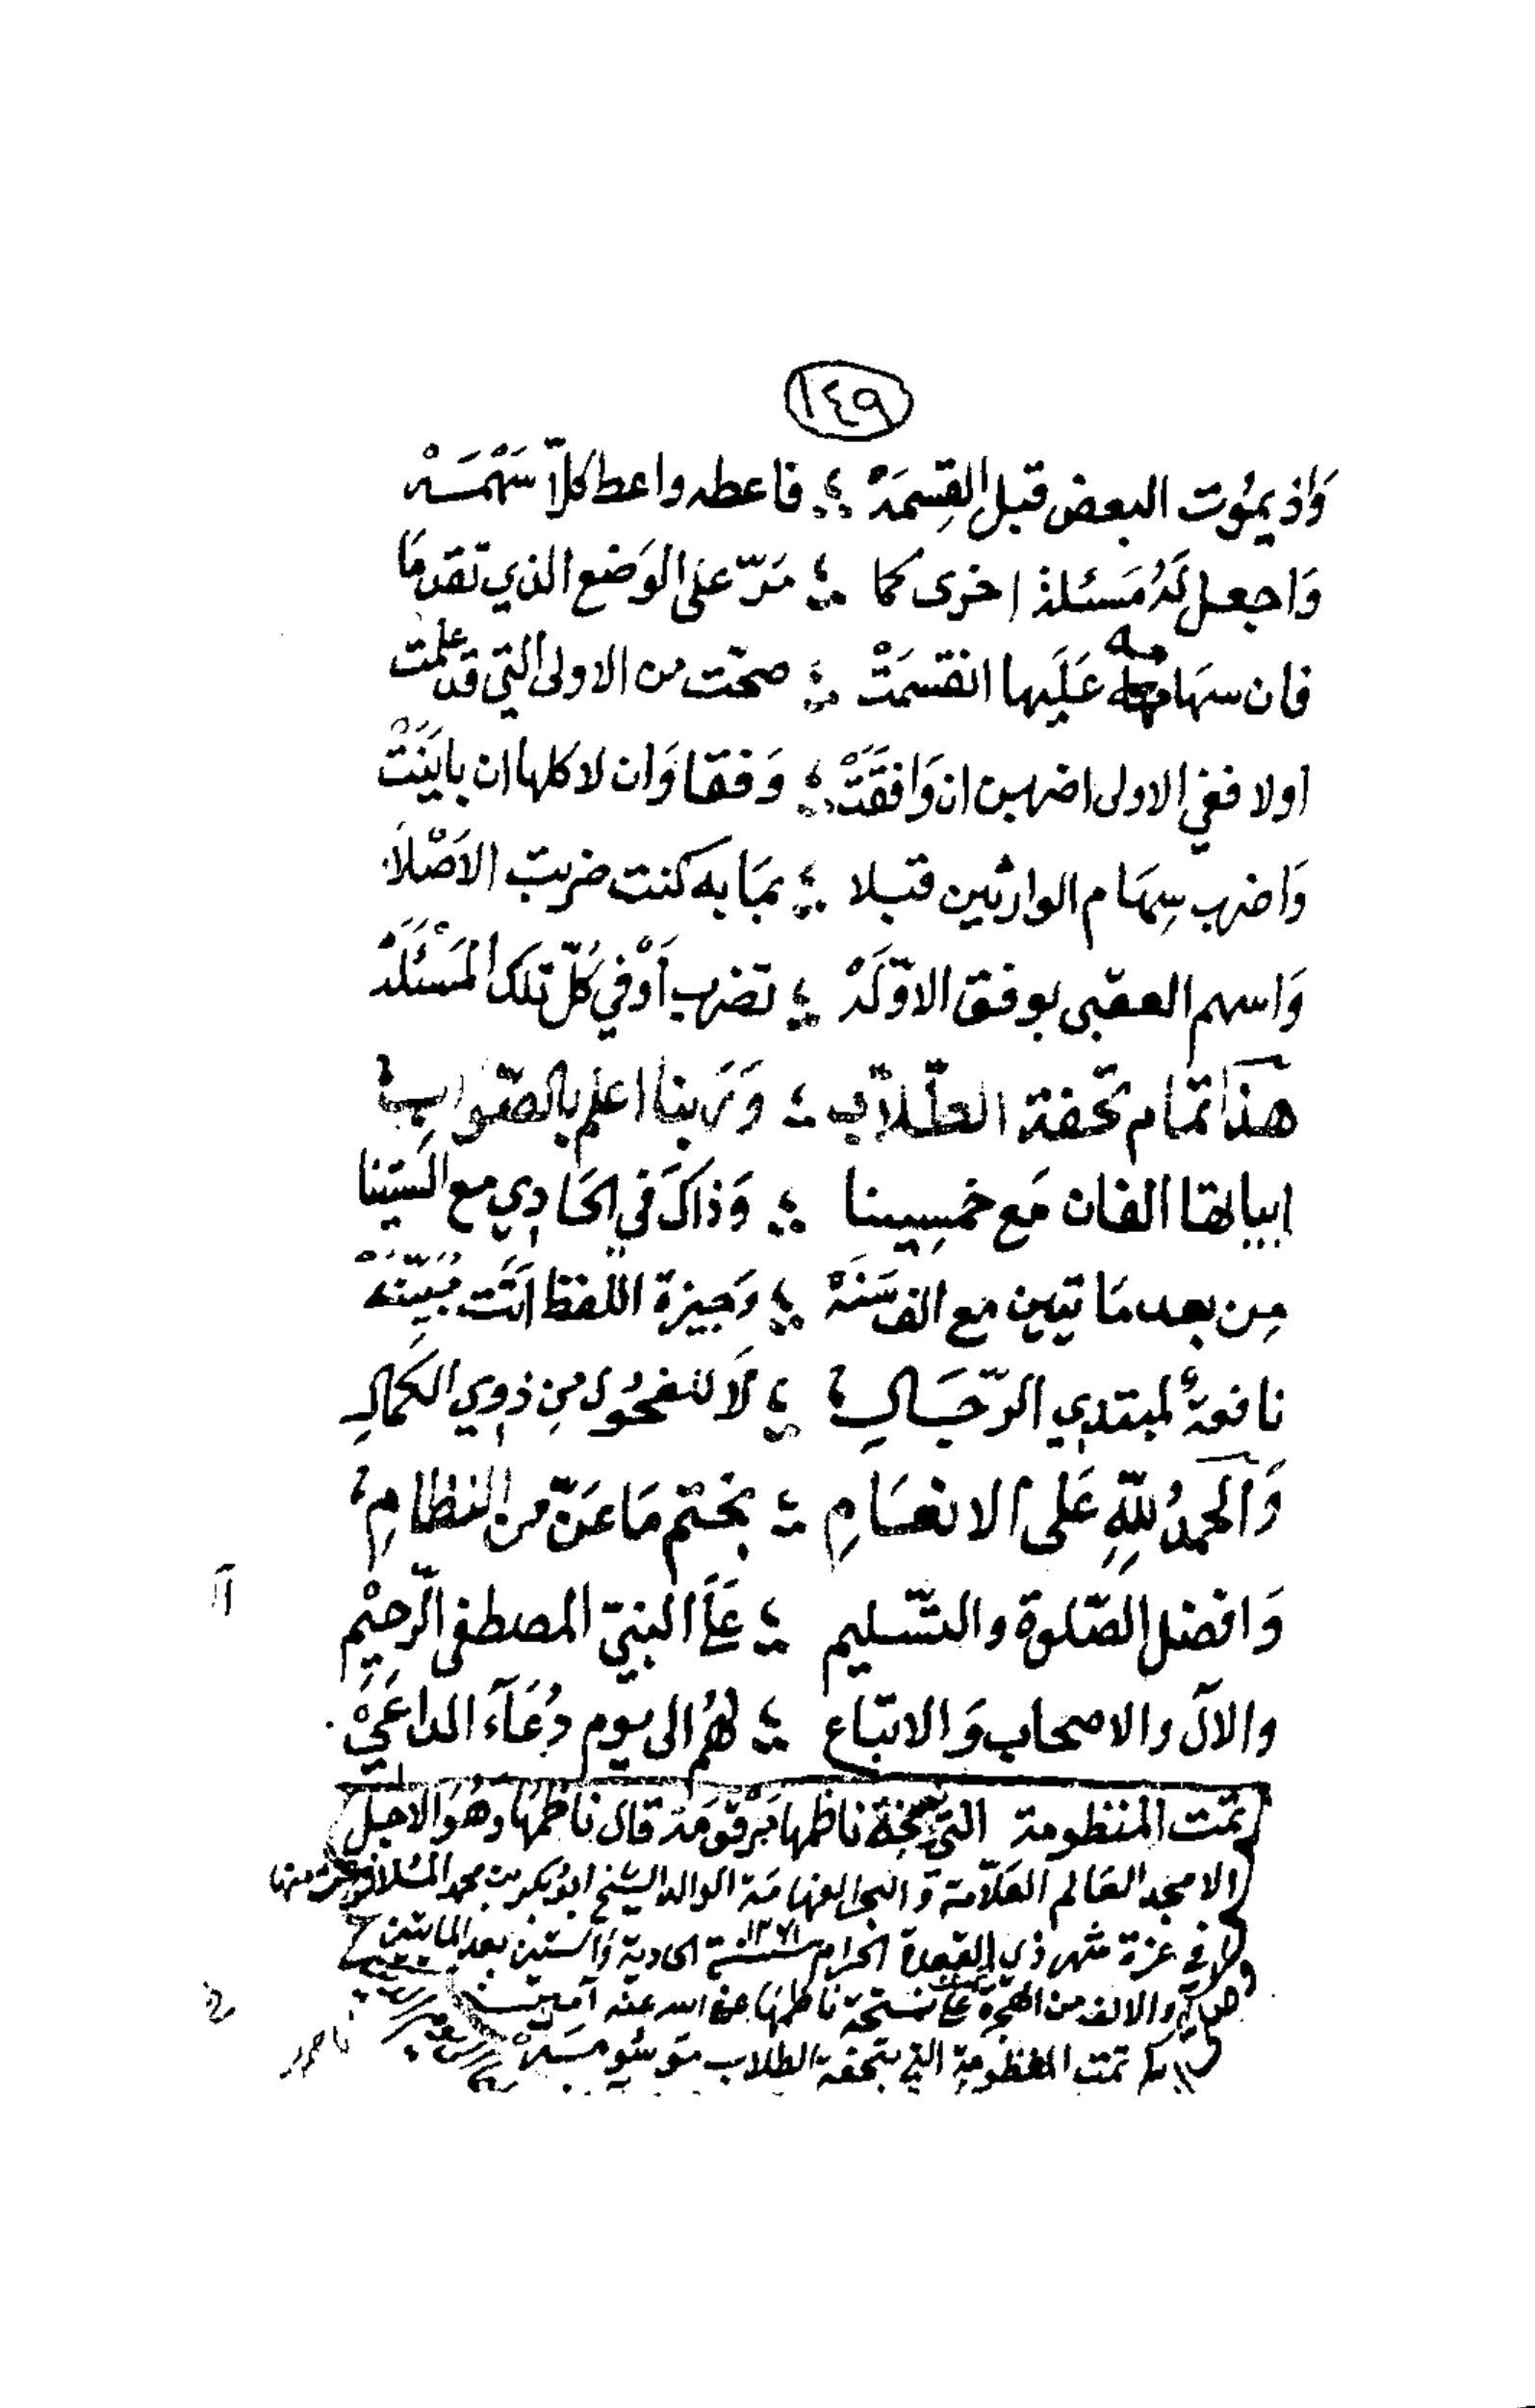 ١٤٩
وَاذ يموُت البعض قبل القِسمَهْ ؛ فاعطه واعط كلاّ سَهْمَهْ
وَاجعل لَهُ مَسئلة اخرى كما ؛ مَرّ على الوَضع الذي تقدمَا
فان سهَامه عَلَيها انقسمَتْ ؛ صحّت من الاولى التي قد علمت
اولا ففي الاولى اضربن ان وَافقَتْ ؛ وَفقا وَان لا كلها ان بايَنَتْ
وَاضرب سِهَام الوارثين قبلا ؛ بمَا به كنت ضربت الاَصْلاَ
وَاسهم العقبى بوفق الاوّلَهْ ؛ تضرب اَوْ في كُلّ تلكَ المَسْئَلَهْ
هذا تمام تحفة الطّلاّب ؛ وَرَبنا اعلم بالصّوابِ
ابياتها الفان مَع خمسِينا ؛ وَذاكَ في الحَادِي مع السّتينا
مِن بعد مَاتين مع الف سَنَهْ ؛ وَجيزة اللّفظ اَتَت مُبَيّنَهْ
نافعةٌ لمبتدِي الرّجَالِ ؛ لاَ للفحُول مِن ذوِي الكمالِ
وَالحمدُ للّهِ عَلى الانعَامِ ؛ بختم مَا عَنّ من النظامِ
وَافضل الصّلوة والتّسليم ؛ عَلَى النبيّ المصطفى الرّحيْمِ
والآل والاصحاب وَالاتباع ؛ لهُم الى يوم دُعَآءَ الداعَيْ
تمت المنظومة التي بنسخة ناظمها مَرْقومَة قال ناظمهَا وهُوَ الاجلّ
الامجد العَالم العَلاّمة وَالبحر الفهامَة الوالد الشيخ ابوُبكر بن محمد المُلا فرغت منها
في غرة شهر ذي القعدة الحرام سنة ١٢٦١ الحادية وَالستين بعد المايتين
والالف من الهجرة على نسخة ناظمها عفى الله عنه آمين
تمت المنظومة التي بتحفة الطلاب موسُومَهْ